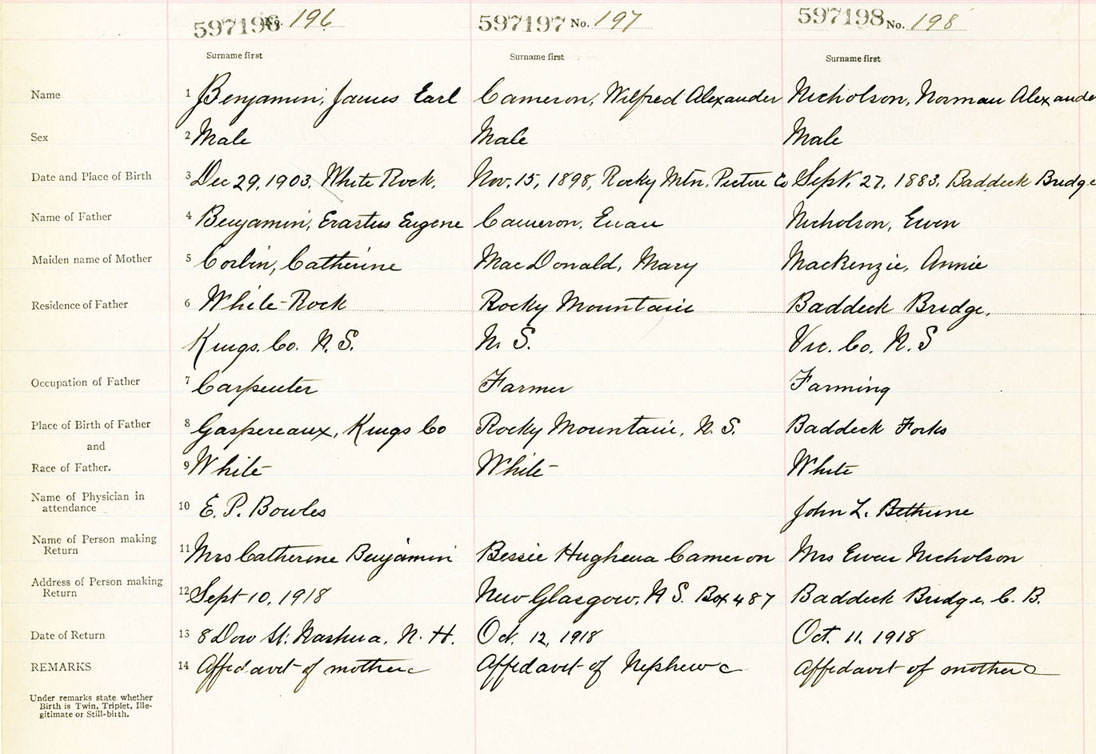 597196 No. 196 597197 No. 197 597198 No. 198
Surname first Surname first Surname first
Name 1 Benjamin, James Earl Cameron, Wilfred Alexander Nicholson, Norman Alexande
Sex 2 Male Male Male
Date and Place of Birth 3 Dec 29, 1903, White Rock, Nov. 15, 1898, Rocky Mtn. Pictou Co Sept. 27, 1883, Baddeck Bridge
Name of Father 4 Benjamin, Erastus Eugene Cameron, Euan Nicholson, Ewen
Maiden name of Mother 5 Corbin, Catherine MacDonald, Mary Mackenzie, Annie
Residence of Father 6 White Rock Rocky Mountain Baddeck Bridge,
Kings. Co. N. S. N. S. Vic. Co. N. S
Occupation of Father 7 Carpenter Farmer Farming
Place of Birth of Father 8 Gaspereaux, Kings Co Rocky Mountain, N. S. Baddeck Forks
and
Race of Father. 9 White White White
Name of Physician in
attendance 10 E. P. Bowles John L. Bethune
Name of Person making
Return 11 Mrs Catherine Benjamin Bessie Hughena Cameron Mrs Ewen Nicholson
Address of Person making
Return 12 Sept 10, 1918 New Glasgow, N S. Box 487 Baddeck Bridge, C. B.
Date of Return 13 8 Dow St. Nashua, N. H. Oct. 12, 1918 Oct. 11, 1918
REMARKS 14 Affidavit of mother Affidavit of Nephew Affidavit of mother
Under remarks state whether
Birth is Twin, Triplet, Ille-
gitimate or Still-birth.